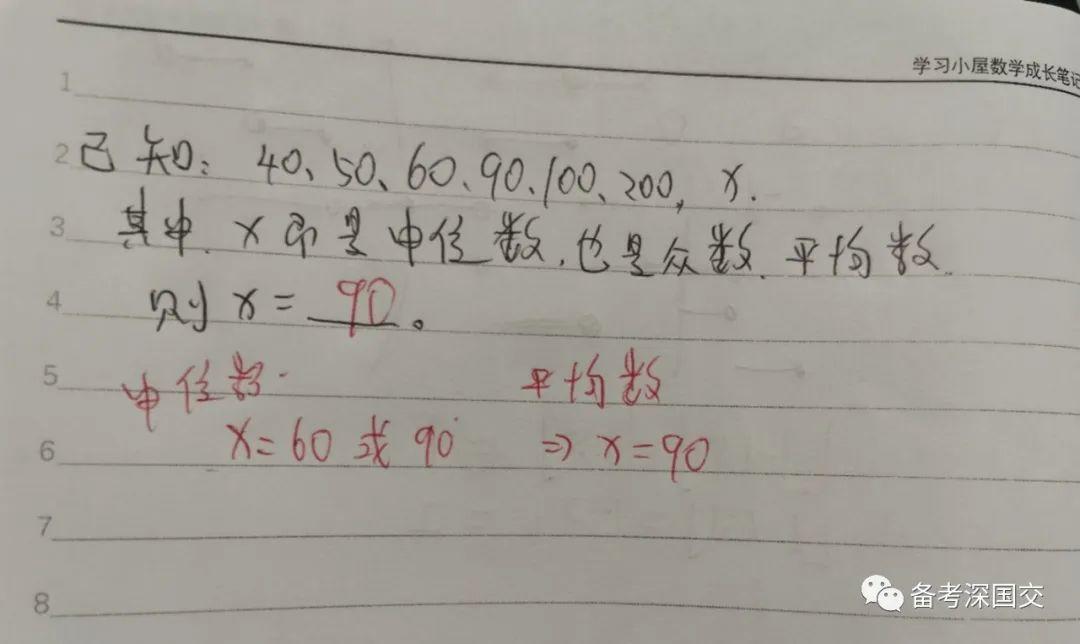 学习小屋数学成长笔记
1
2 已知: 40、50、60、90、100、200, x.
3 其中, x 即是中位数, 也是众数、平均数.
4 则 x = 90。
5 中位数. 平均数
6 x=60 或 90 ⇒ x=90
7
8
备考深国交